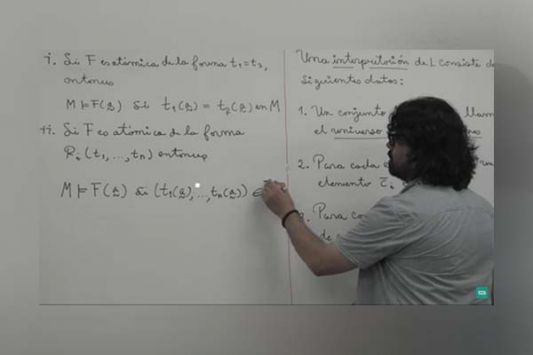 i. Si F es atómica de la forma t₁=t₂,
entonces
M ⊨ F(a) sii t₁(a) = t₂(a) en M
ii. Si F es atómica de la forma
Rᵢ(t₁,...,tₙ) entonces
M ⊨ F(a) sii (t₁(a),...,tₙ(a)) ∈
Una interpretación de L consiste de
siguientes datos:
1. Un conjunto
el universo
2. Para cada
elemento c̄ᵢ
3. Para
de